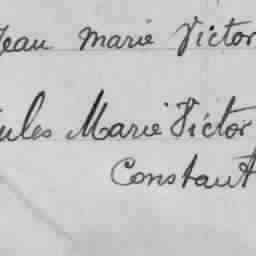 Jean Marie Victor
Jules Marie Victor
Constant